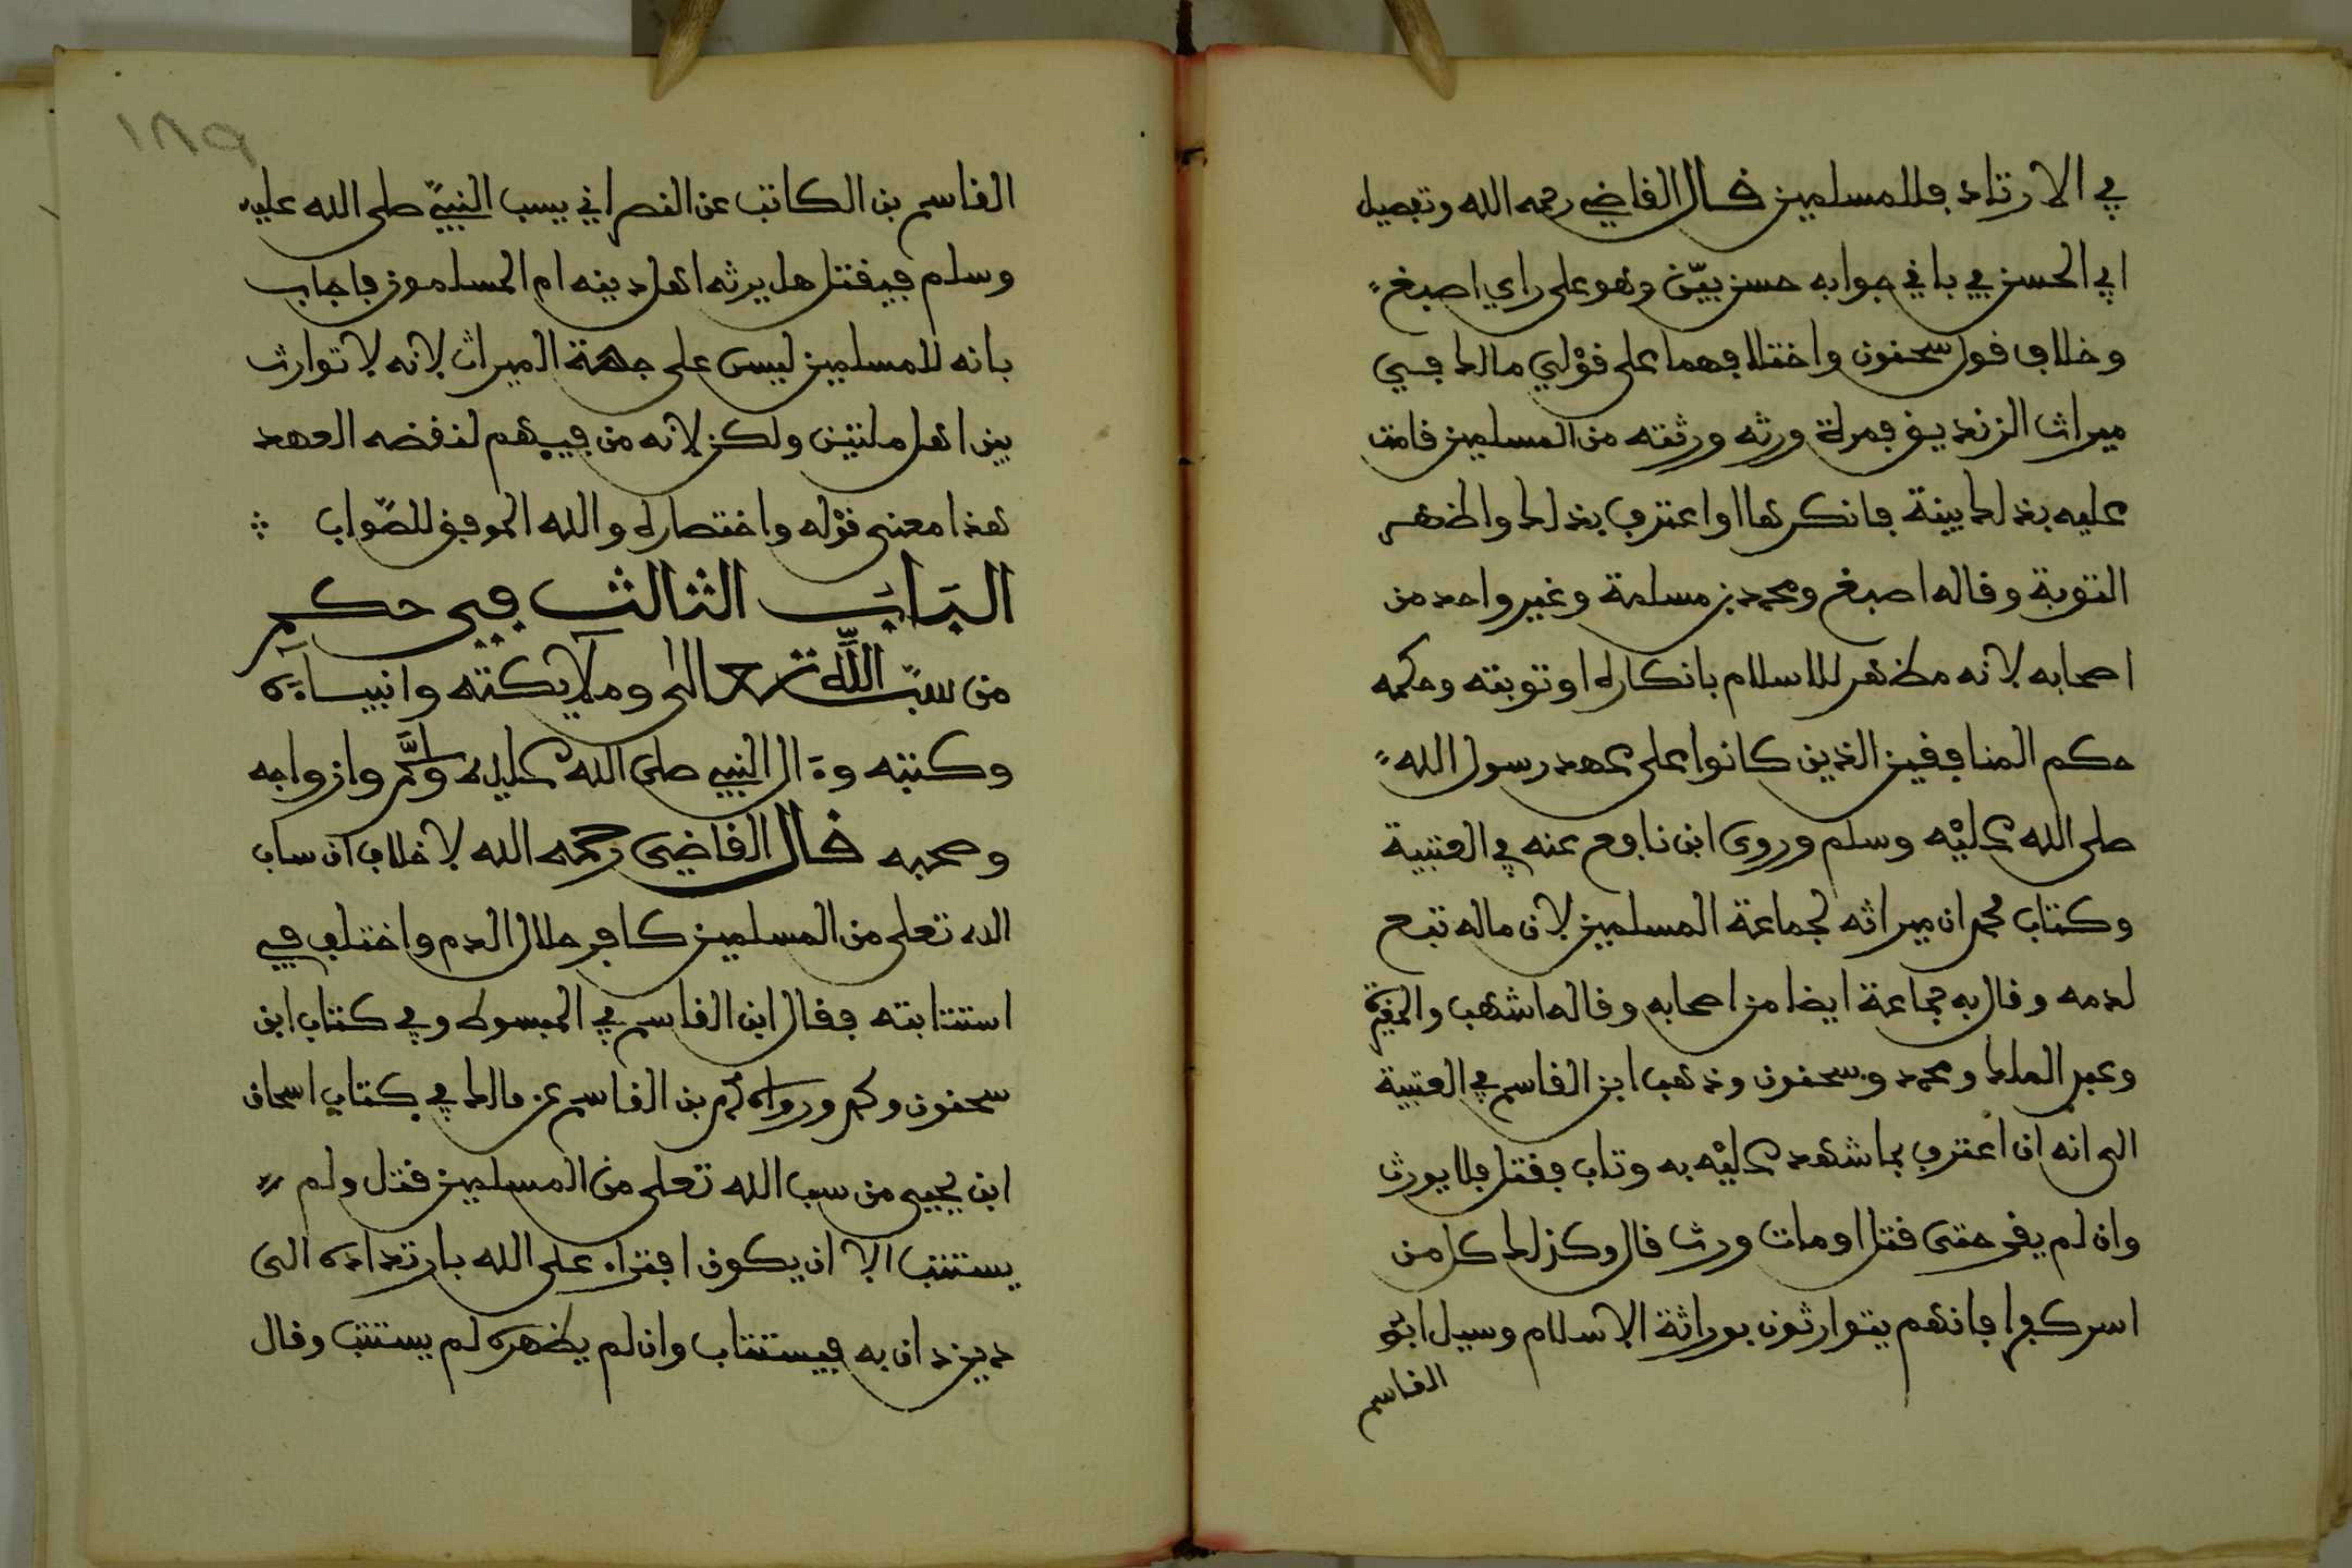 في الارتداد فللمسلمين قال القاضي رحمه الله وتفصيل
ابي الحسن في باقي جوابه حسن بيّن وهو على راي اصبغ
وخلاف قول سحنون واختلافهما على قوْلي مالك في
ميراث الزنديق فمرة ورثه ورثته من المسلمين قامت
عليه بذلك بينة فانكرها او اعترف بذلك واظهر
التوبة وقاله اصبغ ومحمد بن مسلمة وغير واحد من
اصحابه لانه مظهر للاسلام بانكاره او توبته وحكمه
حكم المنافقين الذين كانوا على عهد رسول الله
صلى الله عليْه وسلم وروى ابن نافع عنه في العتبية
وكتاب محمد ان ميراثه لجماعة المسلمين لان ماله تبع
لدمه وقال به جماعة ايضا من اصحابه وقاله اشهب والمغيرة
وعبد الملك ومحمد وسحنون وذهب ابن القاسم في العتبية
الى انه ان اعترف بما شهد عليْه به وتاب فقتل فلا يورث
وان لم يقر حتى قتل او مات ورث قال وكذلك كل من
اسر كفرا فانهم يتوارثون بوراثة الاسلام وسيل ابو
القاسم
١٨٩
القاسم بن الكاتب عن النصراني يسب النبيّ صلى الله عليه
وسلم فيقتل هل يرثه اهل دينه ام المسلمون فاجاب
بانه للمسلمين ليس على جهة الميراث لانه لا توارث
بين اهل ملتين ولكن لانه من فيىهم لنقضه العهد
هذا معنى قوْله واختصاره والله الموفق للصّواب ؞
البَاب الثالث في حكم
من سبّ اللّه تعالى وملايكته وانبياءه
وكتبه وءال النبي صلى الله عليه وسلَّم وازواجه
وصحبه قال القاضي رحمه الله لا خلاف ان ساب
الله تعلى من المسلمين كافر حلال الدم واختلف في
استتابته فقال ابن القاسم في المبسوط وفي كتاب ابن
سحنون ومحمد ورواه ابن القاسم عن مالك في كتاب اسحاق
ابن يحيى من سب الله تعلى من المسلمين قتل ولم
يستتب الا ان يكون افتراء على الله بارتداده الى
دين دان به فيستتاب وان لم يظهره لم يستتب وقال